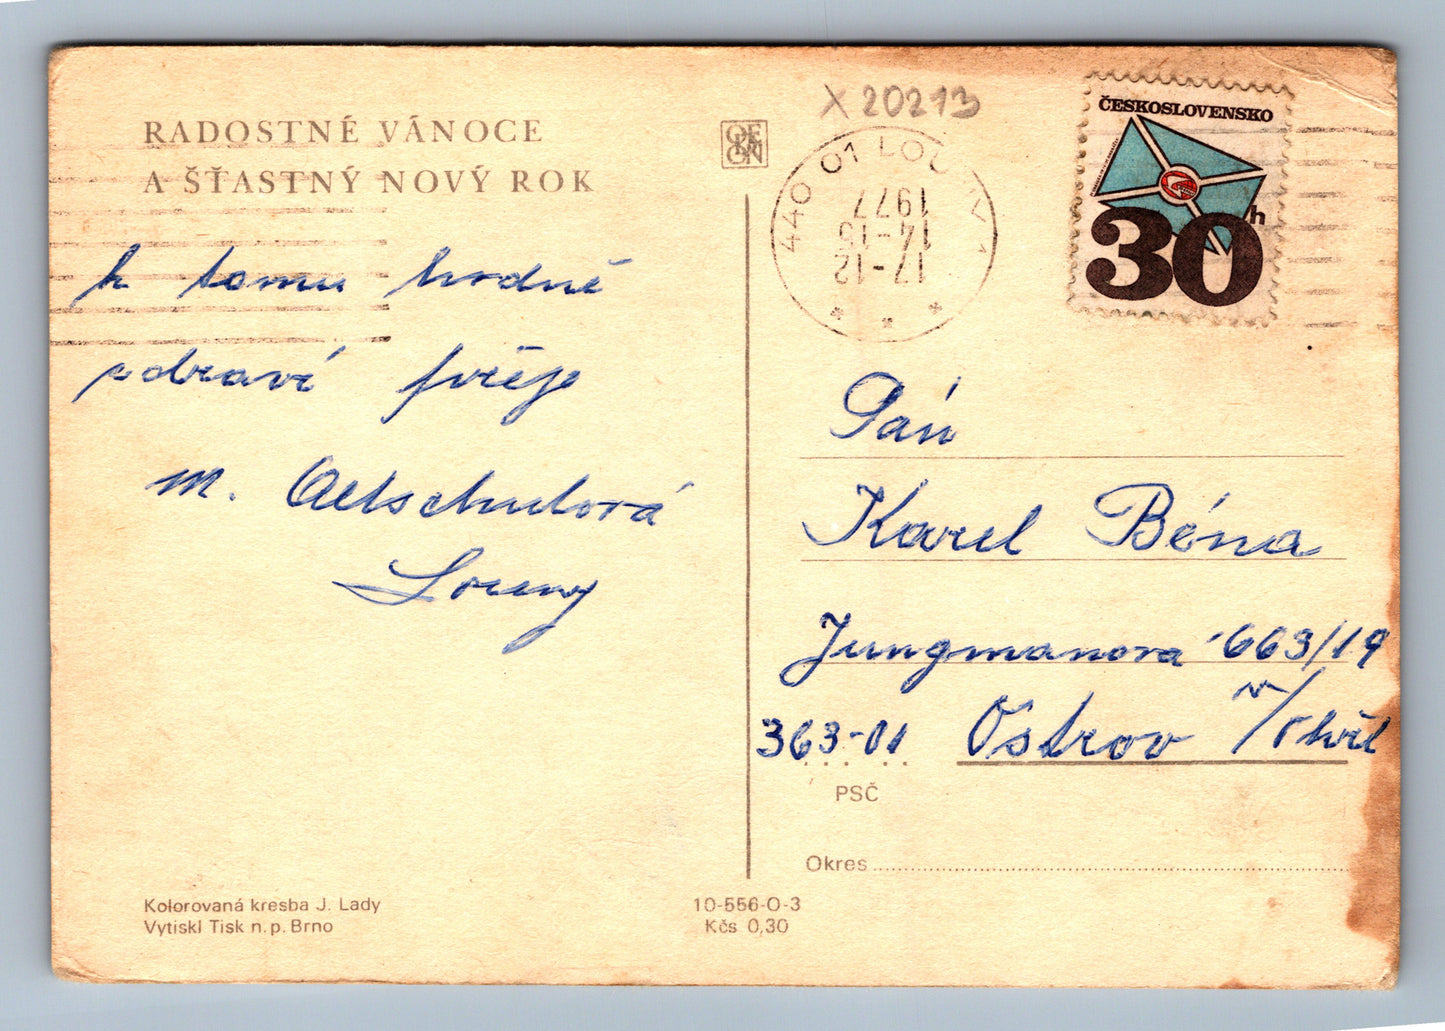 RADOSTNÉ VÁNOCE
A ŠŤASTNÝ NOVÝ ROK
k tomu hodně
zdraví přeje
M. Altschulová
Louny
Kolorovaná kresba J. Lady
Vytiskl Tisk n. p. Brno
10-556-O-3
Kčs 0,30
ODEON
X 20213
440 01 LOUNY 1
1977
14-15
17-12
ČESKOSLOVENSKO
30h
Pán
Karel Béna
Jungmanova 663/19
363-01 Ostrov n/Ohří
PSČ
Okres